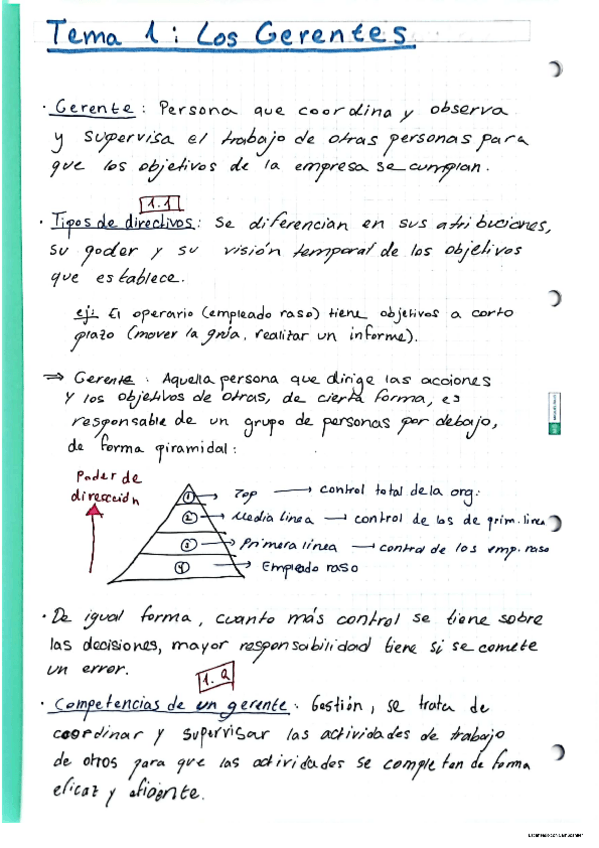 Tema 1: Los Gerentes.
· Gerente: Persona que coordina y observa
y supervisa el trabajo de otras personas para
que los objetivos de la empresa se cumplan.
1.1
· Tipos de directivos: Se diferencian en sus atribuciones,
su poder y su visión temporal de los objetivos
que establece.
ej: El operario (empleado raso) tiene objetivos a corto
plazo (mover la grúa, realizar un informe).
⇒ Gerente: Aquella persona que dirige las acciones
y los objetivos de otras, de cierta forma, es
responsable de un grupo de personas por debajo,
de forma piramidal:
Poder de
dirección
① → Top → control total de la org.
② → Media línea → control de los de prim. línea
③ → Primera línea → control de los emp. raso
④ → Empleado raso
· De igual forma, cuanto más control se tiene sobre
las decisiones, mayor responsabilidad tiene si se comete
un error.
1.2
· Competencias de un gerente: Gestión, se trata de
coordinar y supervisar las actividades de trabajo
de otros para que las actividades se completen de forma
eficaz y eficiente.